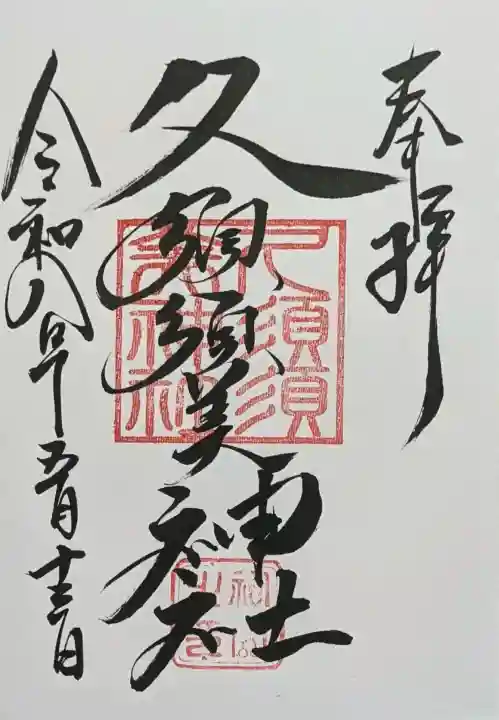 奉拝
久須須美神社
令和八年五月十三日
久須須
美神社